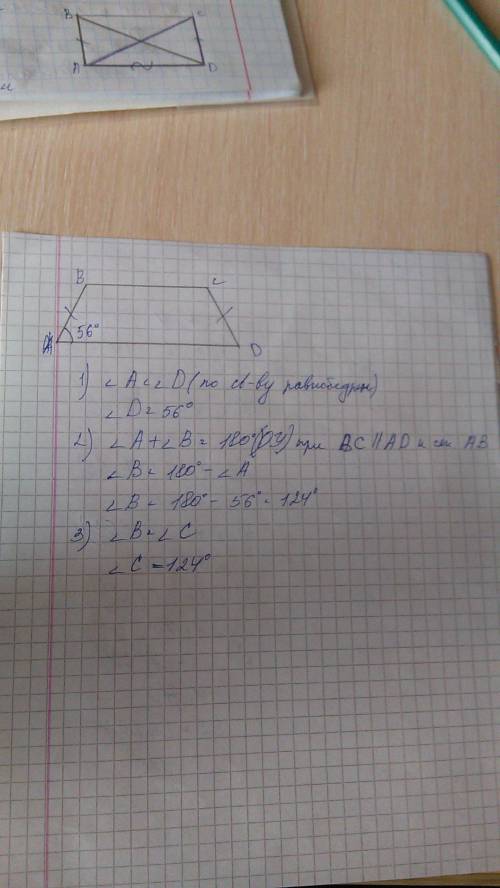 B C
A D
B C
A 56° D
1) ∠A = ∠D (по св-ву равнобедр)
∠D = 56°
2) ∠A + ∠B = 180° (ОУ) при BC || AD и сек AB
∠B = 180° - ∠A
∠B = 180° - 56° = 124°
3) ∠B = ∠C
∠C = 124°